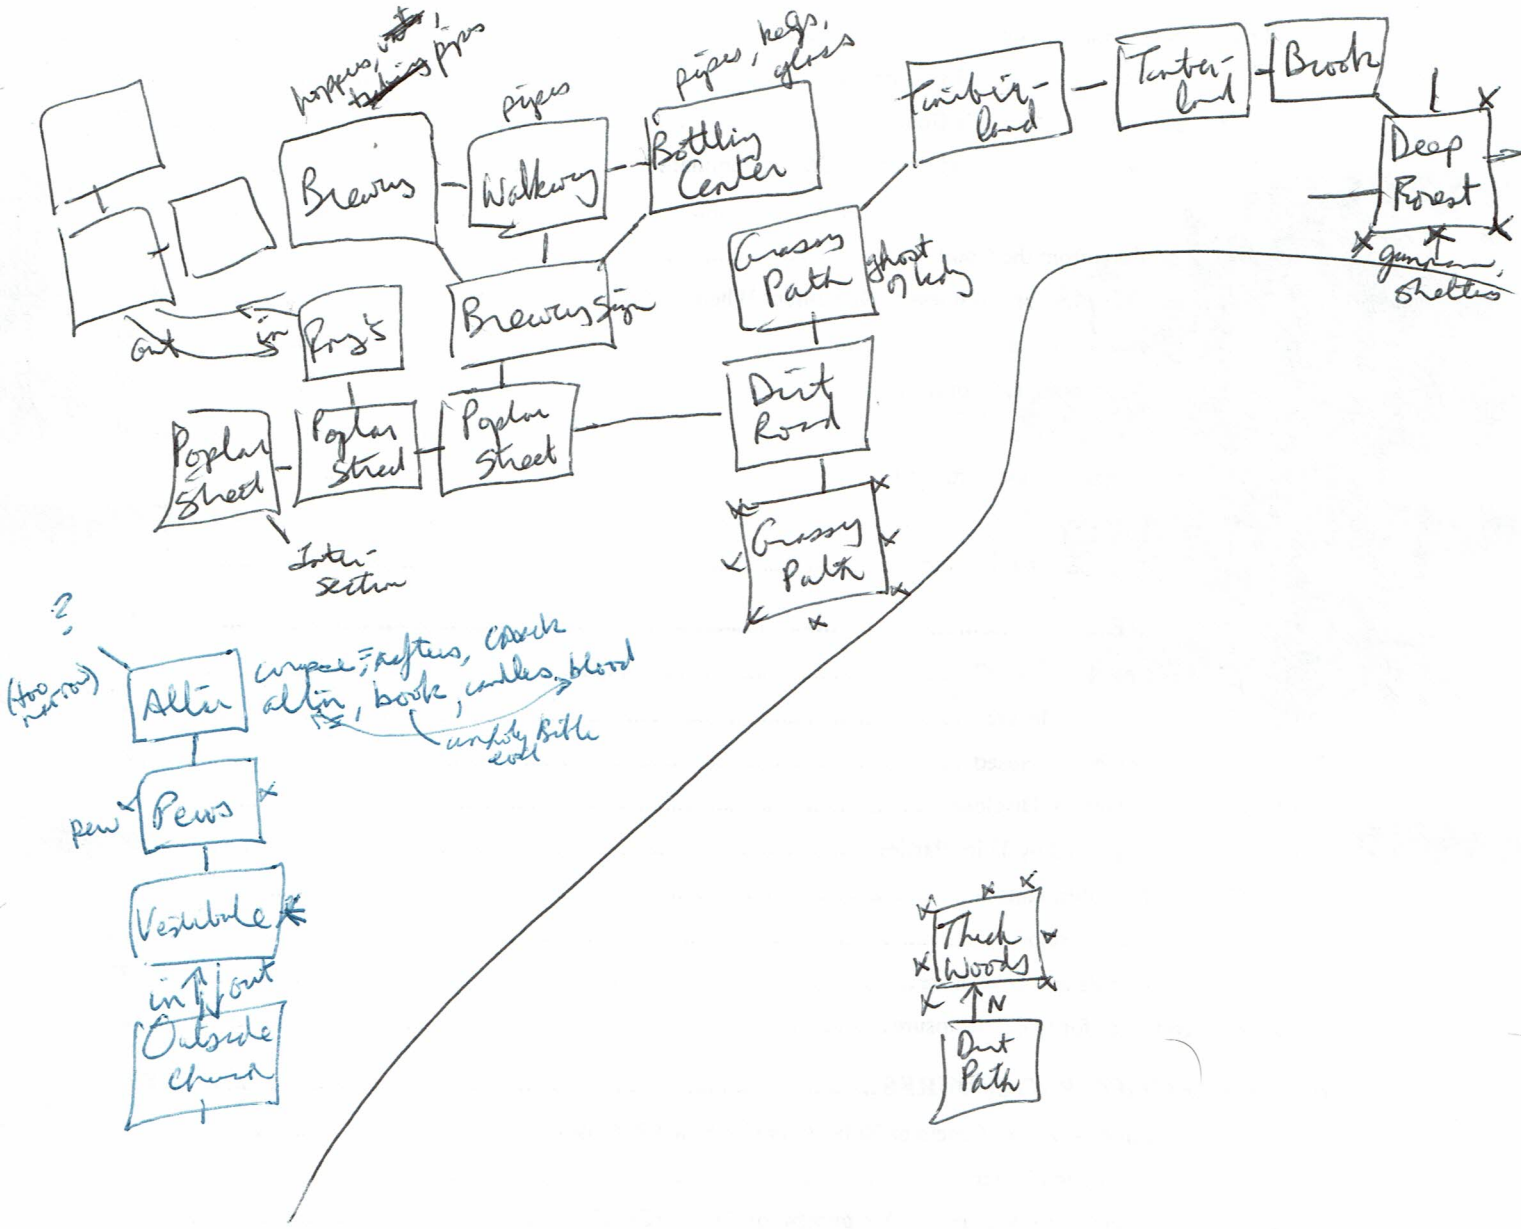 hoppers, vats,
pipes
pipes
pipes, kegs,
glass
Brewery
Walkway
Bottling
Center
Timber-
land
Timber-
land
Brook
Deep
Forest
gunman,
shelters
Grassy
Path
ghost
of lady
Brewery Sign
Roy's
in
out
Poplar
Street
Poplar
Street
Poplar
Street
Dirt
Road
Inter-
section
Grassy
Path
?
(too
narrow)
Altar
corpse = rafters,
altar, book, candles, blood
unholy Bible
evil
pew
Pews
Vestibule
in
out
Outside
Church
Thick
Woods
N
Dirt
Path